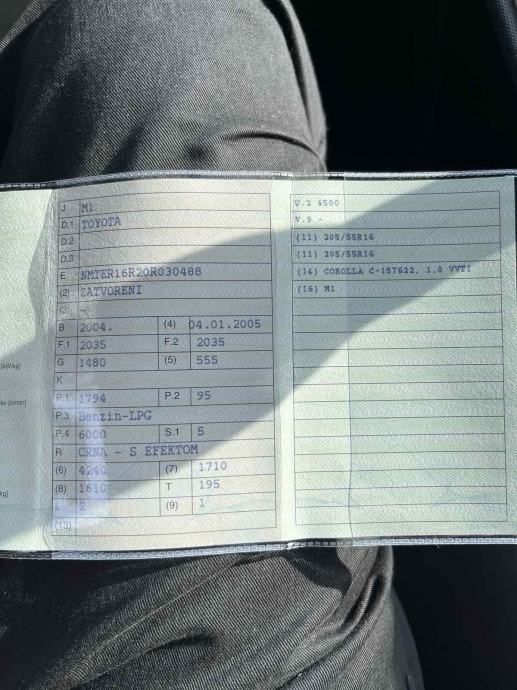 J M1
D.1 TOYOTA
D.2
D.3
E NMTER16R20R030488
(2) ZATVORENI
(3)
B 2004. (4) 04.01.2005
F.1 2035 F.2 2035
G 1480 (5) 555
K
P.1 1794 P.2 95
P.3 Benzin-LPG
P.4 6000 S.1 5
R CRNA - S EFEKTOM
(6) 4240 (7) 1710
(8) 1610 T 195
L 2 (9) 1
(13)
V.2 6500
V.9 -
(11) 205/55R16
(11) 205/55R16
(14) COROLLA C-157622, 1,8 VVTI
(16) M1
[kW/kg]